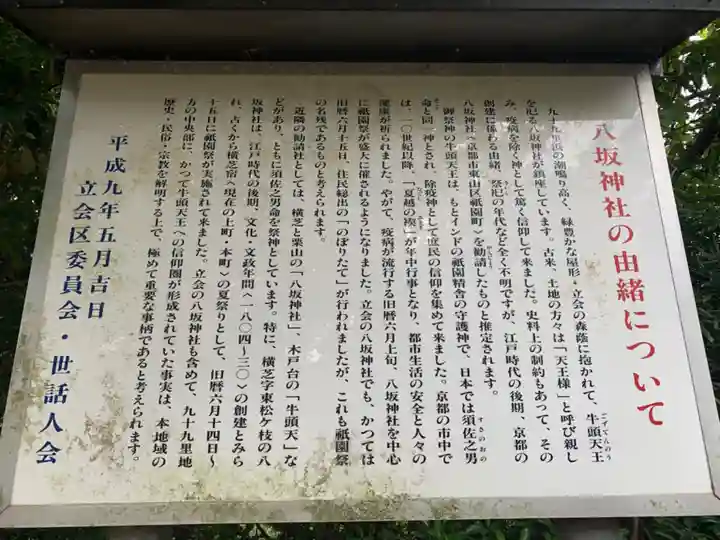 八坂神社の由緒について
九十九里浜の潮鳴り高く、緑豊かな屋形・立会の森蔭に抱かれて、牛頭天王
ごずてんのう
を祀る八坂神社が鎮座しています。古来、土地の方々は「天王様」と呼び親し
み、疫病を除く神として篤く信仰して来ました。史料上の制約もあって、その
創建に係わる由緒、祭祀の年代など全く不明ですが、江戸時代の後期、京都の
八坂神社〈京都市東山区祇園町〉を勧請したものと推定されます。
御祭神の牛頭天王は、もとインドの祇園精舎の守護神で、日本では須佐之男
すさのおの
命と同一神とされ、除疫神として庶民の信仰を集めて来ました。京都の市中で
は、一〇世紀以降、「夏越の禊」が年中行事となり、都市生活の安全と人々の
健康が祈られました。やがて、疫病が流行する旧暦六月上旬、八坂神社を中心
に祇園祭が盛大に催されるようになりました。立会の八坂神社でも、かつては
旧暦六月十五日、住民総出の「のぼりたて」が行われましたが、これも祇園祭
の名残であるものと考えられます。
近隣の勧請社としては、横芝と栗山の「八坂神社」、木戸台の「牛頭天」な
どがあり、ともに須佐之男命を祭神としています。特に、横芝字東松ケ枝の八
坂神社は、江戸時代の後期、文化・文政年間〈一八〇四〜三〇〉の創建とみら
れ、古くから横芝宿〈現在の上町・本町〉の夏祭りとして、旧暦六月十四日〜
十五日に祇園祭が実施されて来ました。立会の八坂神社も含めて、九十九里地
方の中央部に、かつて牛頭天王への信仰圏が形成されていた事実は、本地域の
歴史・民俗・宗教を解明する上で、極めて重要な事柄であると考えられます。
平成九年五月吉日
立会区委員会・世話人会